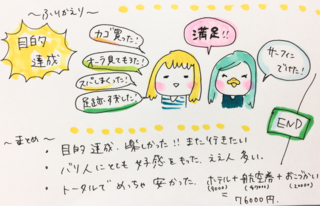 〜ふりかえり〜
目的
達成
カゴ買った!
オーラ見てもろた!
スパしまくった!
満足!!
サーフィン
できた!
END
〜まとめ〜
・目的達成、楽しかった!! また行きたい
・バリ人にとても好感をもった。ええ人多い。
・トータルでめっちゃ安かった。ホテル+航空券+おこづかい
76000円.